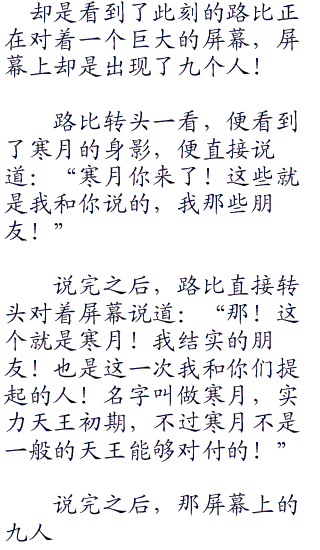 却是看到了此刻的路比正
在对着一个巨大的屏幕，屏
幕上却是出现了九个人！
路比转头一看，便看到
了寒月的身影，便直接说
道：“寒月你来了！这些就
是我和你说的，我那些朋
友！”
说完之后，路比直接转
头对着屏幕说道：“那！这
个就是寒月！我结实的朋
友！也是这一次我和你们提
起的人！名字叫做寒月，实
力天王初期，不过寒月不是
一般的天王能够对付的！”
说完之后，那屏幕上的
九人